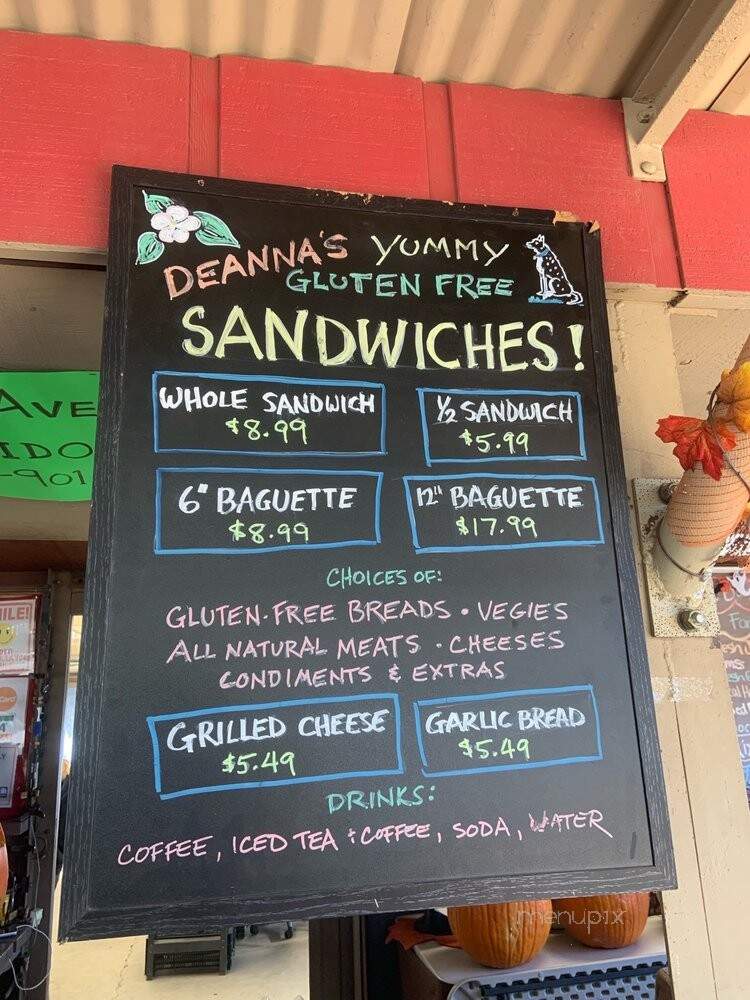 DEANNA'S YUMMY
GLUTEN FREE
SANDWICHES!
WHOLE SANDWICH
$8.99
1/2 SANDWICH
$5.99
6" BAGUETTE
$8.99
12" BAGUETTE
$17.99
CHOICES OF:
GLUTEN-FREE BREADS • VEGIES
ALL NATURAL MEATS • CHEESES
CONDIMENTS & EXTRAS
GRILLED CHEESE
$5.49
GARLIC BREAD
$5.49
DRINKS:
COFFEE, ICED TEA + COFFEE, SODA, WATER
AVE
IDO
-901
menupix